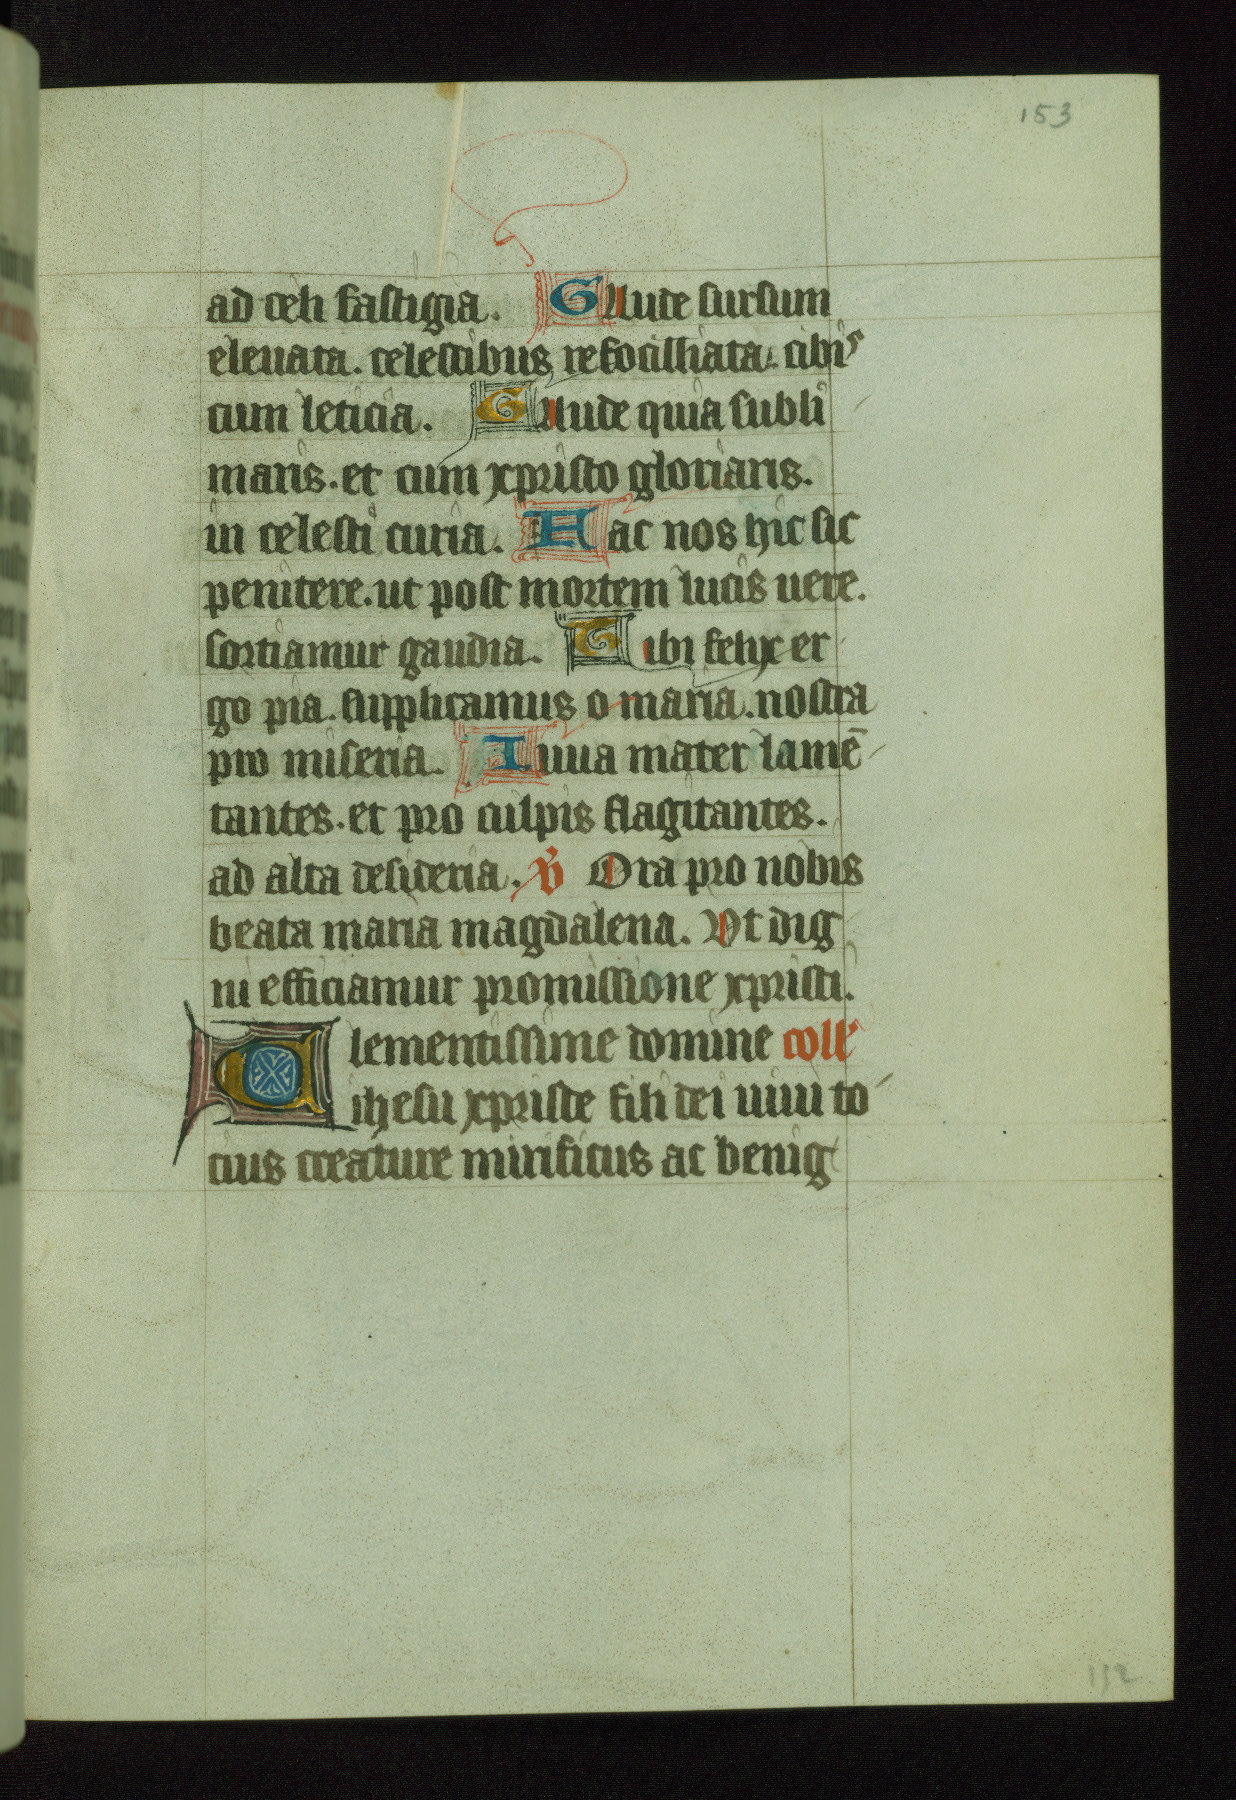 153
ad celi fastigia. Gaude sursum
eleuata. celestibus refocilliata. cibis
cum leticia. Gaude quia subli
maris. et cum xpristo gloriaris.
in celesti curia. Fac nos hic sic
penitere. ut post mortem lucis uere.
sortiamur gaudia. Tibi felix er
go pia. supplicamus o maria. nostra
pro miseria. Iuua mater lamē
tantes. et pro culpis flagitantes.
ad alta desideria. V Ora pro nobis
beata maria magdalena. Vt dig
ni efficiamur promissione xpristi.
Clementissime domine coll
ihesu xpriste fili dei uiui to
cius creature mirificus ac benig
112